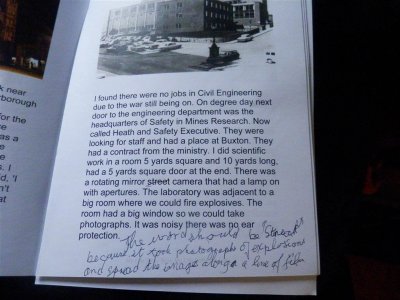 k near
rborough
for the
te
as a
e
s. I
d, 'I
n't
at
I found there were no jobs in Civil Engineering
due to the war still being on. On degree day next
door to the engineering department was the
headquarters of Safety in Mines Research. Now
called Heath and Safety Executive. They were
looking for staff and had a place at Buxton. They
had a contract from the ministry. I did scientific
work in a room 5 yards square and 10 yards long,
had a 5 yards square door at the end. There was
a rotating mirror street camera that had a lamp on
with apertures. The laboratory was adjacent to a
big room where we could fire explosives. The
room had a big window so we could take
photographs. It was noisy there was no ear
protection.
The word should be "Streak"
because it took photographs of explosions
and spread the image along a line of film